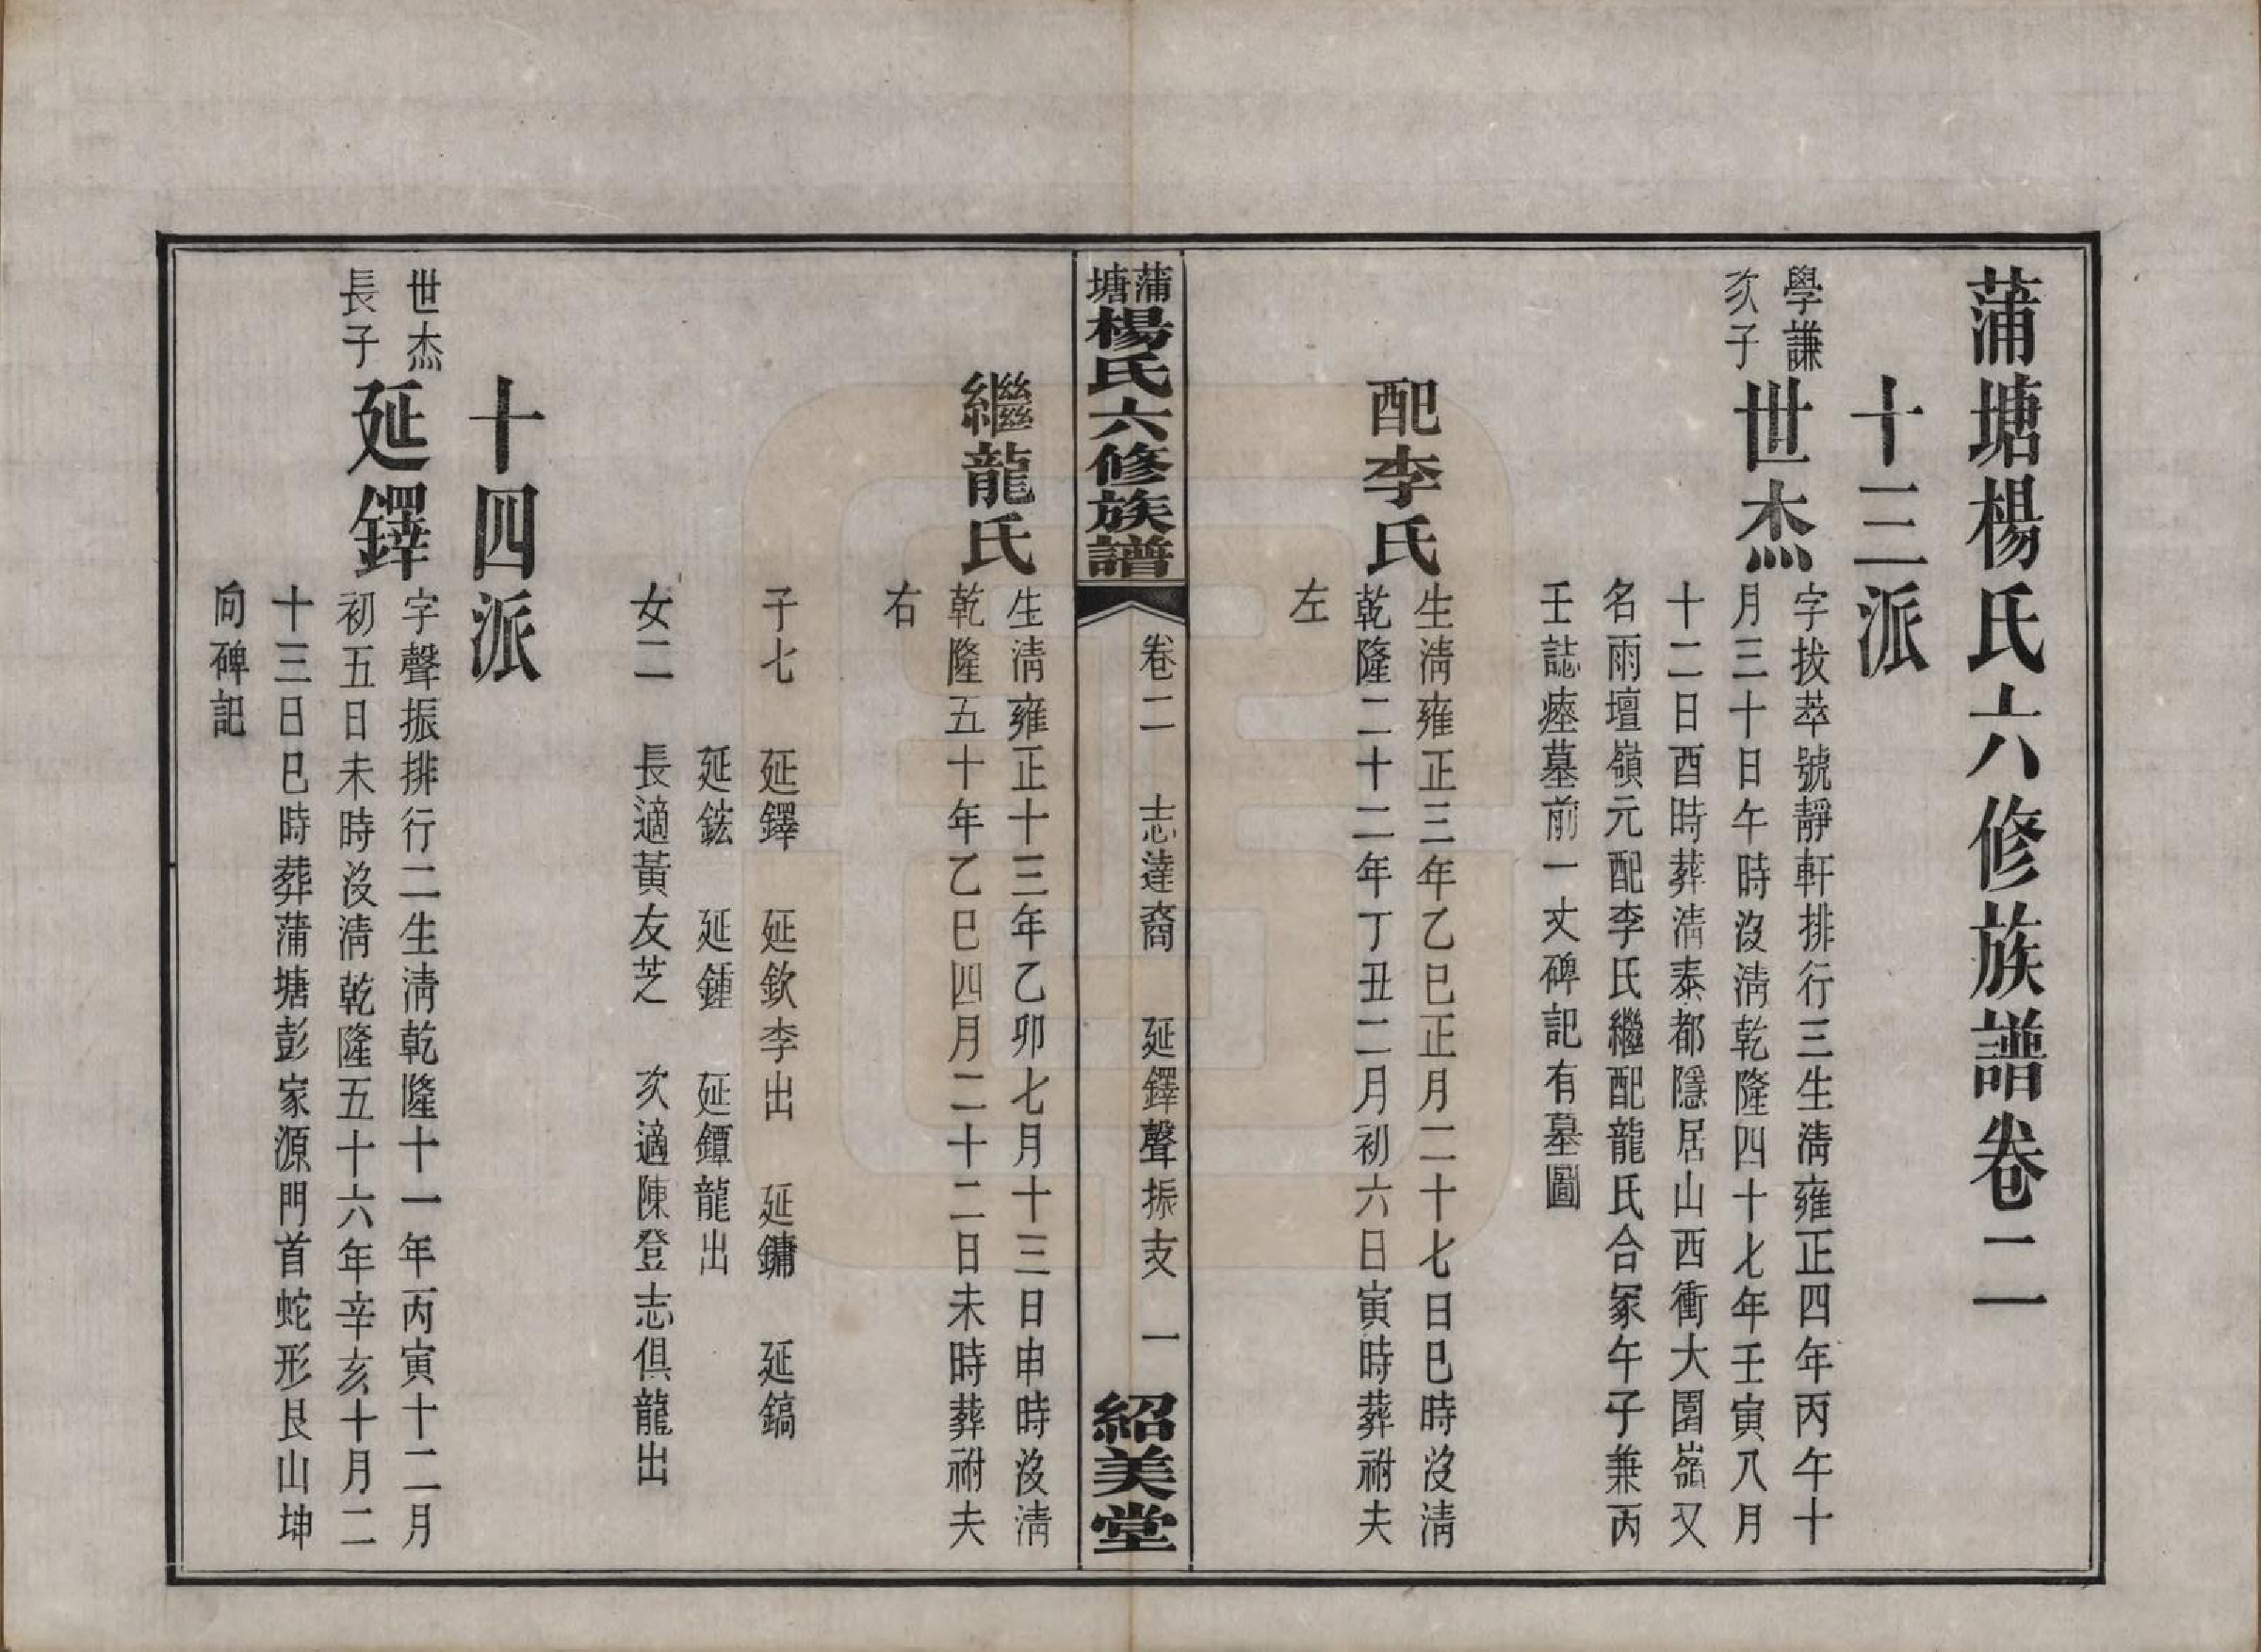 蒲塘楊氏六修族譜卷二
十三派
學謙
次子
世杰
字拔萃號靜軒排行三生淸雍正四年丙午十
月三十日午時沒淸乾隆四十七年壬寅八月
十二日酉時葬淸泰都隱居山西衝大園嶺又
名雨壇嶺元配李氏繼配龍氏合冢午子兼丙
壬誌瘞墓前一丈碑記有墓圖
配李氏
生淸雍正三年乙巳正月二十七日巳時沒淸
乾隆二十二年丁丑二月初六日寅時葬祔夫
左
蒲塘楊氏六修族譜
卷二 志達裔 延鐸聲振支 一
紹美堂
繼龍氏
生淸雍正十三年乙卯七月十三日申時沒淸
乾隆五十年乙巳四月二十二日未時葬祔夫
右
子七 延鐸 延欽李出 延鏞 延鎬
延鋐 延鍾 延鐔龍出
女二 長適黃友芝 次適陳登志俱龍出
十四派
世杰
長子
延鐸
字聲振排行二生淸乾隆十一年丙寅十二月
初五日未時沒淸乾隆五十六年辛亥十月二
十三日巳時葬蒲塘彭家源門首蛇形艮山坤
向碑記